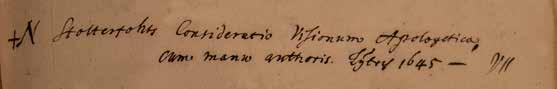 +N Stolterfohts Consideratio Visionum Apologetica,
cum manu authoris. 1645 — VII